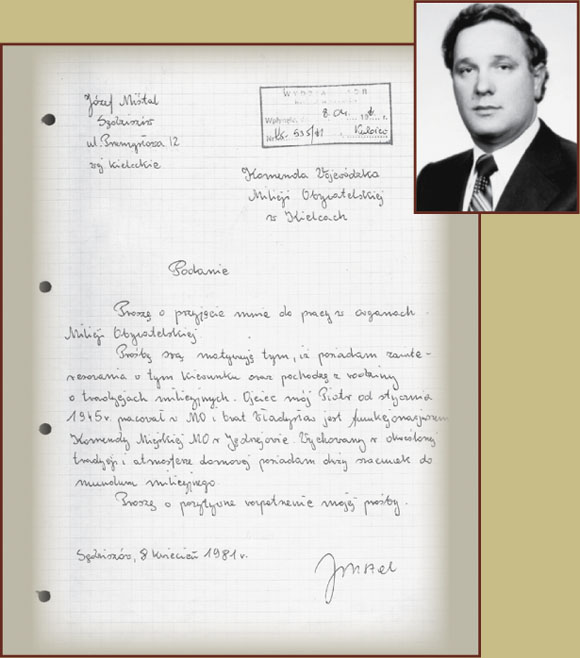 Józef Mistal
Sędziszów
ul. Przemysłowa 12
woj. kieleckie
WYDZIAŁ KADR
Wpłynęło, dn. 8.04. 19
Nr Kk-635/81 Kielce
Komenda Wojewódzka
Milicji Obywatelskiej
w Kielcach
Podanie
Proszę o przyjęcie mnie do pracy w organach
Milicji Obywatelskiej
Prośbę swą motywuję tym, iż posiadam zainte-
resowania w tym kierunku oraz pochodzę z rodziny
o tradycjach milicyjnych. Ojciec mój Piotr od stycznia
1945r. pracował w MO i brat Władysław jest funkcjonariuszem
Komendy Miejskiej MO w Jędrzejowie. Wychowany w określonej
tradycji i atmosferze domowej posiadam duży szacunek do
munduru milicyjnego.
Proszę o pozytywne rozpatrzenie mojej prośby.
Sędziszów, 8 kwiecień 1981r.